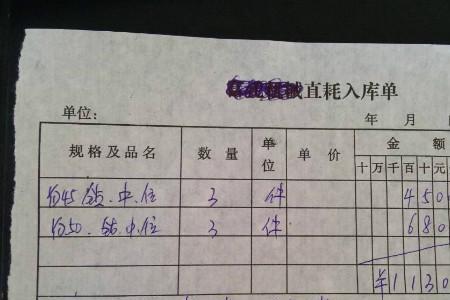 械直耗入库单
单位： 年 月
规格及品名 数量 单位 单价 金额
十万千百十元
勾45钻.中.位 3 件 450
勾50.钻.中位 3 件 680
¥1130